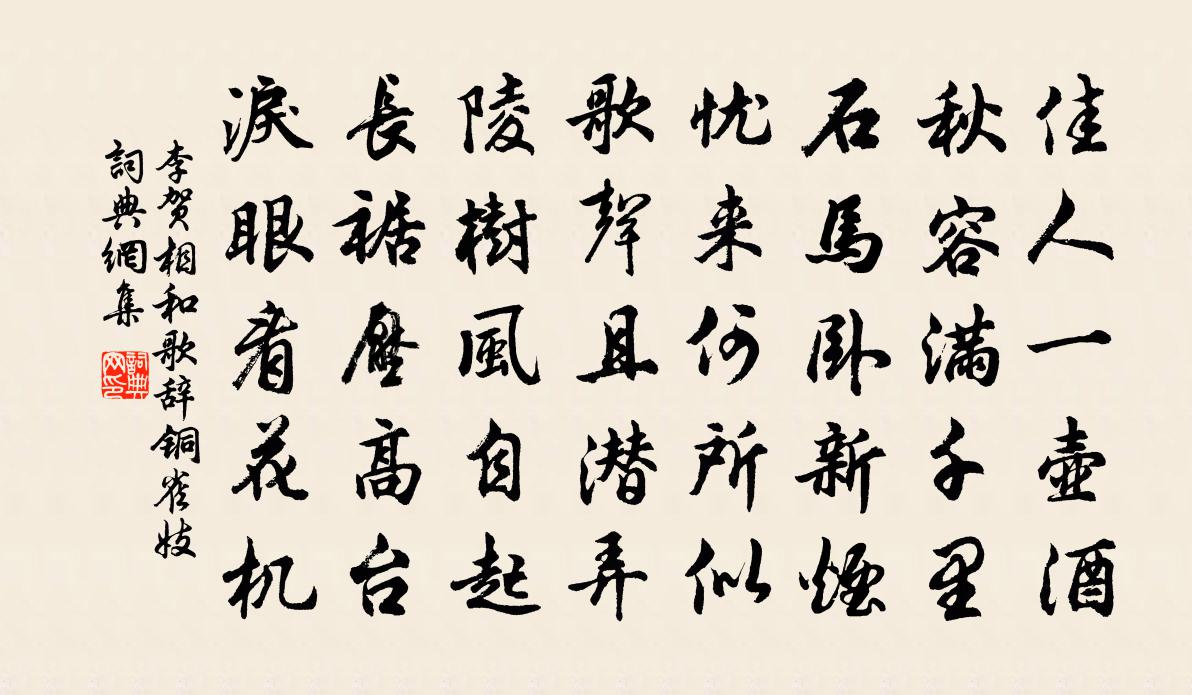 佳人一壺酒
秋容滿千里
石馬卧新煙
忧来何所似
歌聲且潜弄
陵樹風自起
長裾壓高台
淚眼看花机
李贺相和歌辞铜雀妓
詞典網集
詞典网印